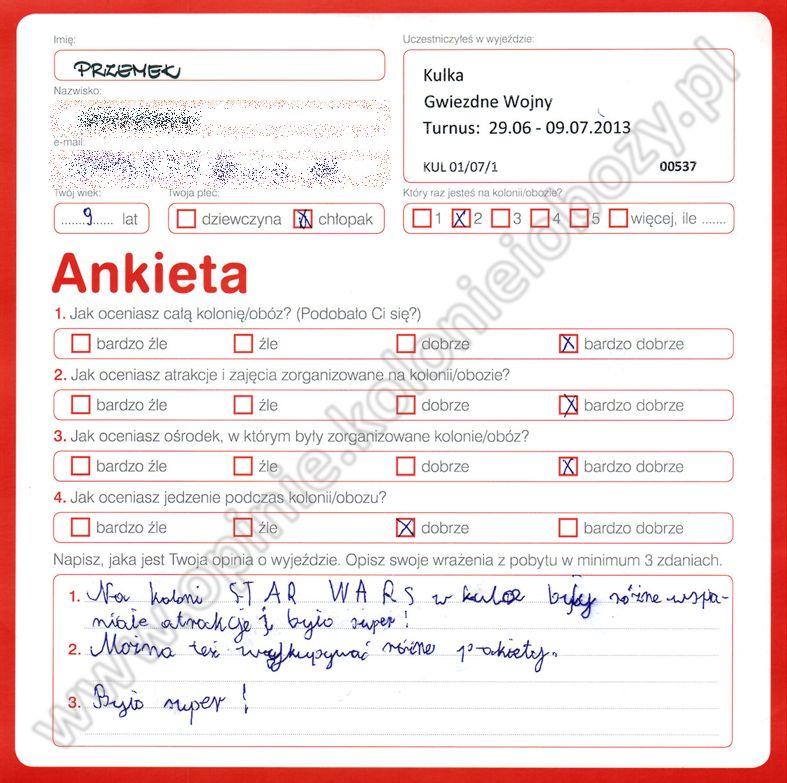 Imię:
PRZEMEK
Nazwisko:
e-mail:
Twój wiek:
9 lat
Twoja płeć:
dziewczyna chłopak
Uczestniczyłeś w wyjeździe:
Kulka
Gwiezdne Wojny
Turnus: 29.06 - 09.07.2013
KUL 01/07/1 00537
Który raz jesteś na kolonii/obozie?
1 2 3 4 5 więcej, ile .......
Ankieta
1. Jak oceniasz całą kolonię/obóz? (Podobało Ci się?)
bardzo źle źle dobrze bardzo dobrze
2. Jak oceniasz atrakcje i zajęcia zorganizowane na kolonii/obozie?
bardzo źle źle dobrze bardzo dobrze
3. Jak oceniasz ośrodek, w którym były zorganizowane kolonie/obóz?
bardzo źle źle dobrze bardzo dobrze
4. Jak oceniasz jedzenie podczas kolonii/obozu?
bardzo źle źle dobrze bardzo dobrze
Napisz, jaka jest Twoja opinia o wyjeździe. Opisz swoje wrażenia z pobytu w minimum 3 zdaniach.
1. Na koloni STAR WARS w kulce były różne wspa-
niałe atrakcje i było super!
2. Można też wykupywać różne pakiety.
3. Było super!
www.opinie.kolonieiobozy.pl